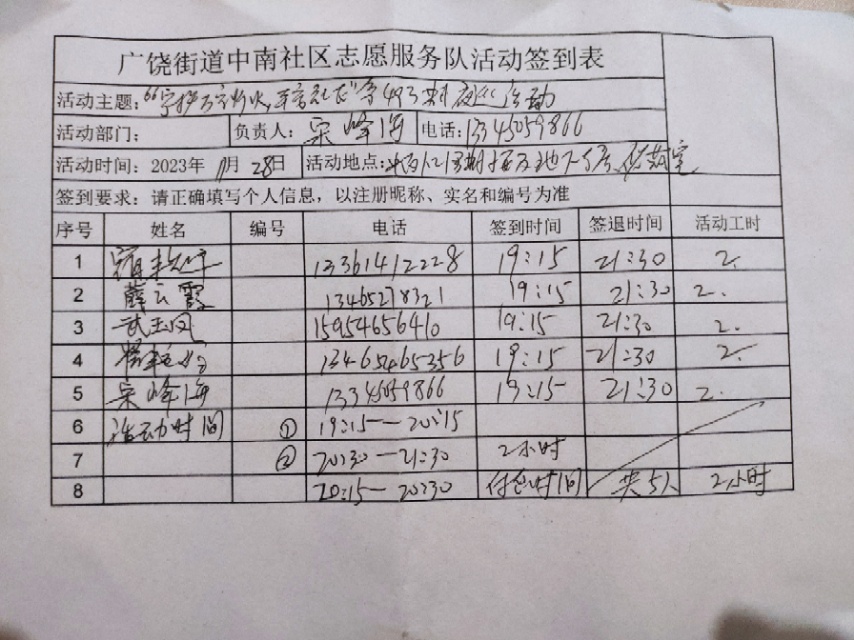 广饶街道中南社区志愿服务队活动签到表
活动主题：“守护万家灯火 第493期夜巡活动
活动部门： 负责人：宋峰海 电话：13345059866
活动时间：2023年11月28日 活动地点：
签到要求：请正确填写个人信息，以注册昵称、实名和编号为准
序号 姓名 编号 电话 签到时间 签退时间 活动工时
1 13361412228 19:15 21:30 2.
2 薛云霞 13465278321 19:15 21:30 2.
3 武玉凤 15954656410 19:15 21:30 2.
4 13465465356 19:15 21:30 2.
5 宋峰海 13345059866 19:15 21:30 2.
6 活动时间 ① 19:15—20:15
7 ② 20:30—21:30 2小时
8 20:15—20:30 休息时间 共5人 2小时